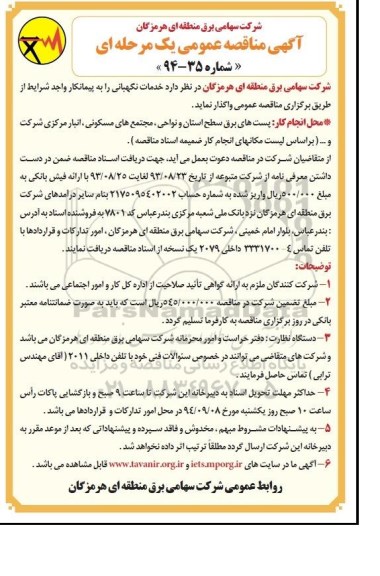 شرکت سهامی برق منطقه ای هرمزگان
آگهی مناقصه عمومی یک مرحله ای
« شماره ۳۵-۹۴ »
شرکت سهامی برق منطقه ای هرمزگان در نظر دارد خدمات نگهبانی را به پیمانکار واجد شرایط از
طریق برگزاری مناقصه عمومی واگذار نماید .
*محل انجام کار : پست های برق سطح استان و نواحی ، مجتمع های مسکونی ، انبار مرکزی شرکت
و ... ( براساس لیست مکانهای انجام کار ضمیمه اسناد مناقصه ) .
از متقاضیان شرکت در مناقصه دعوت بعمل می آید، جهت دریافت اسناد مناقصه ضمن در دست
داشتن معرفی نامه از شرکت متبوعه از تاریخ ۹۴/۰۸/۲۳ لغایت ۹۴/۰۸/۲۵ با ارائه فیش بانکی به
مبلغ ۵۰۰/۰۰۰ ریال واریز شده به شماره حساب ۲۱۷۵۰۹۵۴۰۲۰۰۲ بنام سایر درآمدهای شرکت
برق منطقه ای هرمزگان نزد بانک ملی شعبه مرکزی بندرعباس کد ۷۸۰۱ به فروشنده اسناد به آدرس
: بندرعباس، بلوار امام خمینی ، شرکت سهامی برق منطقه ای هرمزگان ، امور تدارکات و قراردادها با
تلفن تماس ۴ - ۳۳۳۱۷۰۰ داخلی ۲۰۷۹ یک نسخه از اسناد مناقصه دریافت نمایند .
توضیحات:
۱- شرکت کنندگان ملزم به ارائه گواهی تأئید صلاحیت از اداره کل کار و امور اجتماعی می باشند .
۲- مبلغ تضمین شرکت در مناقصه ۵۴۵/۰۰۰/۰۰۰ ریال است که باید به صورت ضمانتنامه معتبر
بانکی در روز برگزاری مناقصه به کارفرما تسلیم گردد .
۳- دستگاه نظارت : دفتر حراست و امور محرمانه شرکت سهامی برق منطقه ای هرمزگان می باشد
و شرکت های متقاضی می توانند در خصوص سئوالات فنی خود با تلفن داخلی ۲۰۱۱ ( آقای مهندس
ترابی ) تماس حاصل فرمایند .
۴- حداکثر مهلت تحویل اسناد به دبیرخانه این شرکت تا ساعت ۹ صبح و بازگشایی پاکات رأس
ساعت ۱۰ صبح روز یکشنبه مورخ ۹۴/۰۹/۰۸ در محل امور تدارکات و قراردادها می باشد .
۵- به پیشنهادات مشروط مبهم ، مخدوش و فاقد سپرده و پیشنهاداتی که بعد از موعد مقرر به
دبیرخانه این شرکت ارسال گردد مطلقاً ترتیب اثر داده نخواهد شد .
۶- آگهی ما در سایت های iets.mporg.ir و www.tavanir.org.ir قابل مشاهده می باشد .
روابط عمومی شرکت سهامی برق منطقه ای هرمزگان